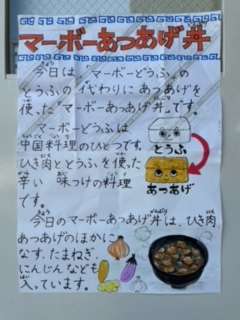 マーボーあつあげ丼
今日は、マーボーどうふの
とうふの代わりにあつあげを
使った"マーボーあつあげ丼"です。
マーボーどうふは
中国料理のひとつです。
ひき肉ととうふを使った
辛い味つけの料理
です。
とうふ
あつあげ
今日のマーボーあつあげ丼は、ひき肉、
あつあげのほかに
なす、たまねぎ、
にんじんなども
入っています。